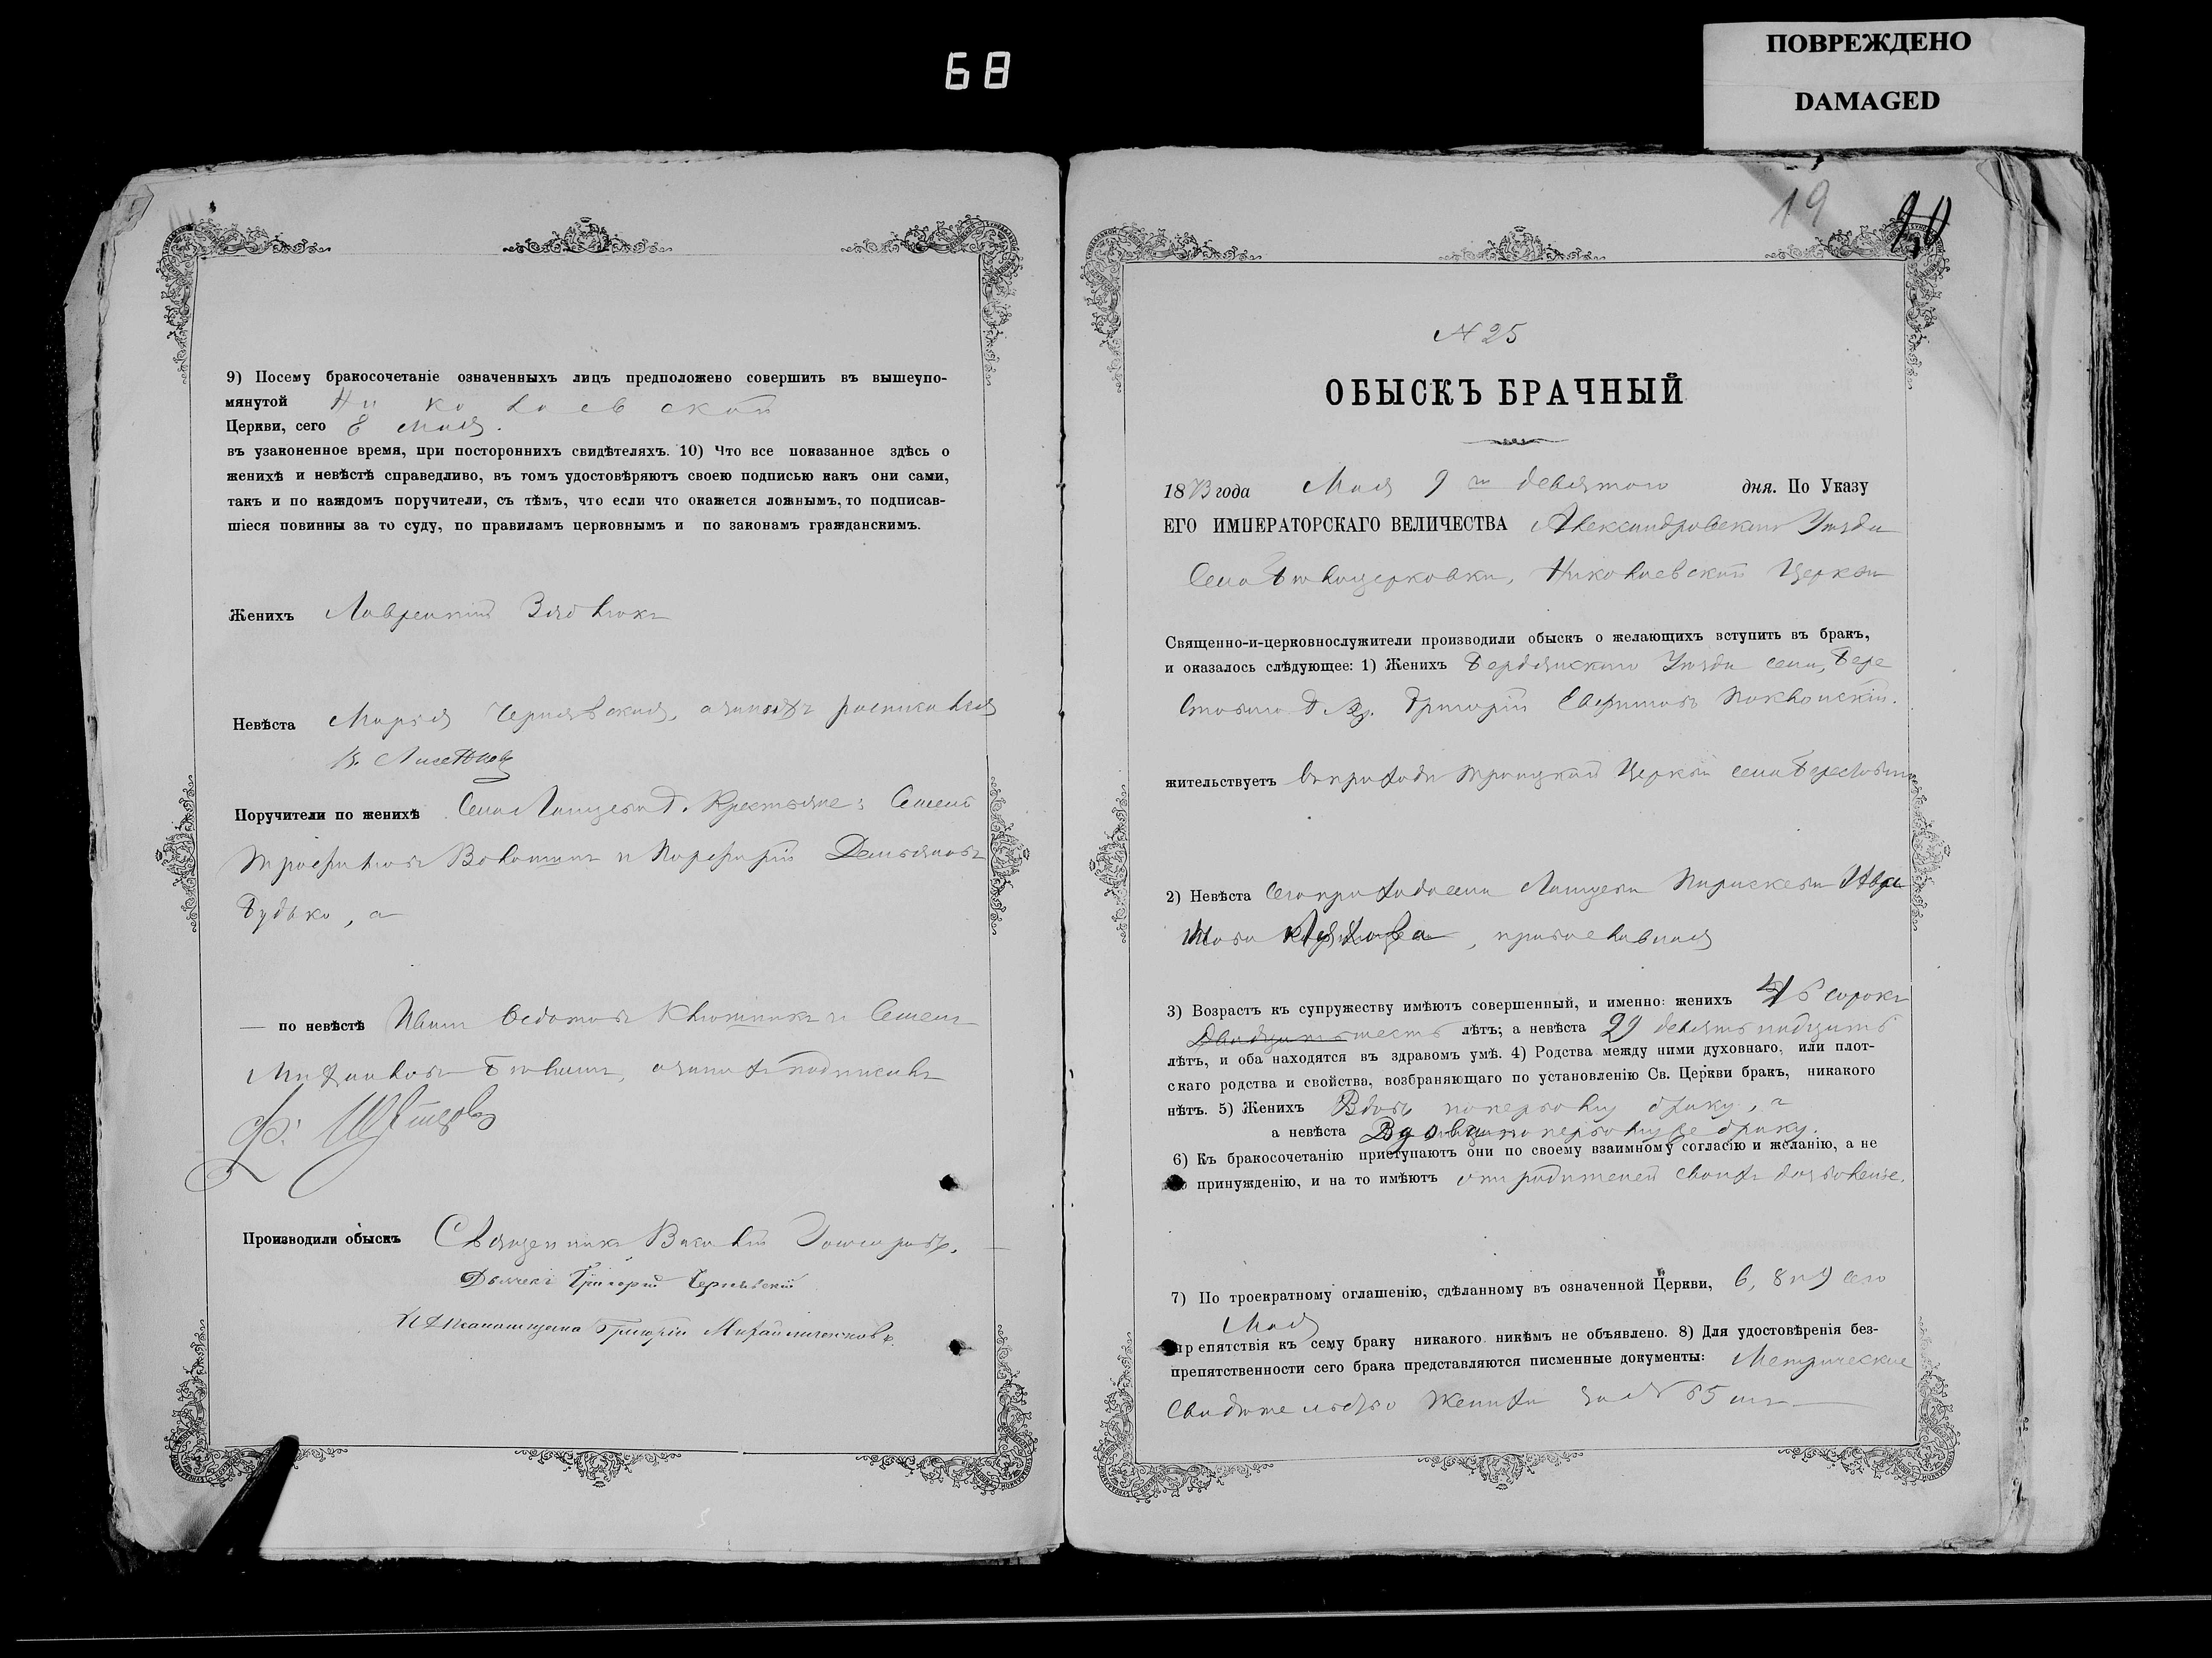 68
ПОВРЕЖДЕНО
DAMAGED
9) Посему бракосочетаніе означенныхъ лицъ предположено совершить въ вышеупо-
мянутой Николаевской
Церкви, сего 8 Мая.
въ узаконенное время, при постороннихъ свидѣтеляхъ. 10) Что все показанное здѣсь о
женихѣ и невѣстѣ справедливо, въ томъ удостовѣряютъ своею подписью какъ они сами,
такъ и по каждомъ поручители, съ тѣмъ, что если что окажется ложнымъ, то подписав-
шіеся повинны за то суду, по правиламъ церковнымъ и по законамъ гражданскимъ.
Женихъ Лаврентій
Невѣста Марія Чернявская, а за нихъ
Поручители по женихѣ Села Крестьяне: Семенъ
Трофимовъ и Порфирій Демьяновъ
Будько, а
— по невѣстѣ Иванъ Федотовъ и Семенъ
Михайловъ
Производили обыскъ Священникъ Василій
Дьячекъ Григорій Чернявскій
Григорій
19
20
N 25
ОБЫСКЪ БРАЧНЫЙ
1873 года Мая 9 го девятого дня. По Указу
ЕГО ИМПЕРАТОРСКАГО ВЕЛИЧЕСТВА Александровскаго Уѣзда
Села Бѣлоцерковки, Николаевской Церкви
Священно-и-церковнослужители производили обыскъ о желающихъ вступить въ бракъ,
и оказалось слѣдующее: 1) Женихъ Бердянскаго Уѣзда села, Бере
стового Григорій Поклонскій.
жительствуетъ въ приходѣ Троицкой Церкви села Берестового
2) Невѣста сего прихода села Параскева
3) Возрастъ къ супружеству имѣютъ совершенный, и именно: женихъ 46 сорокъ
Двадцать шесть лѣтъ; а невѣста 29 девять надцать
лѣтъ, и оба находятся въ здравомъ умѣ. 4) Родства между ними духовнаго, или плот-
скаго родства и свойства, возбраняющаго по установленію Св. Церкви бракъ, никакого
нѣтъ. 5) Женихъ Вдовъ по первому браку, а
а невѣста Вдова по первому же браку.
6) Къ бракосочетанію приступаютъ они по своему взаимному согласію и желанію, а не
принужденію, и на то имѣютъ отъ родителей своихъ дозволеніе.
7) По троекратному оглашенію, сдѣланному въ означенной Церкви, 6, 8 и 9 сего
Мая
препятствія къ сему браку никакого никѣмъ не объявлено. 8) Для удостовѣренія без-
препятственности сего брака представляются писменные документы: Метрическое
свидѣтельство жениха за № 65